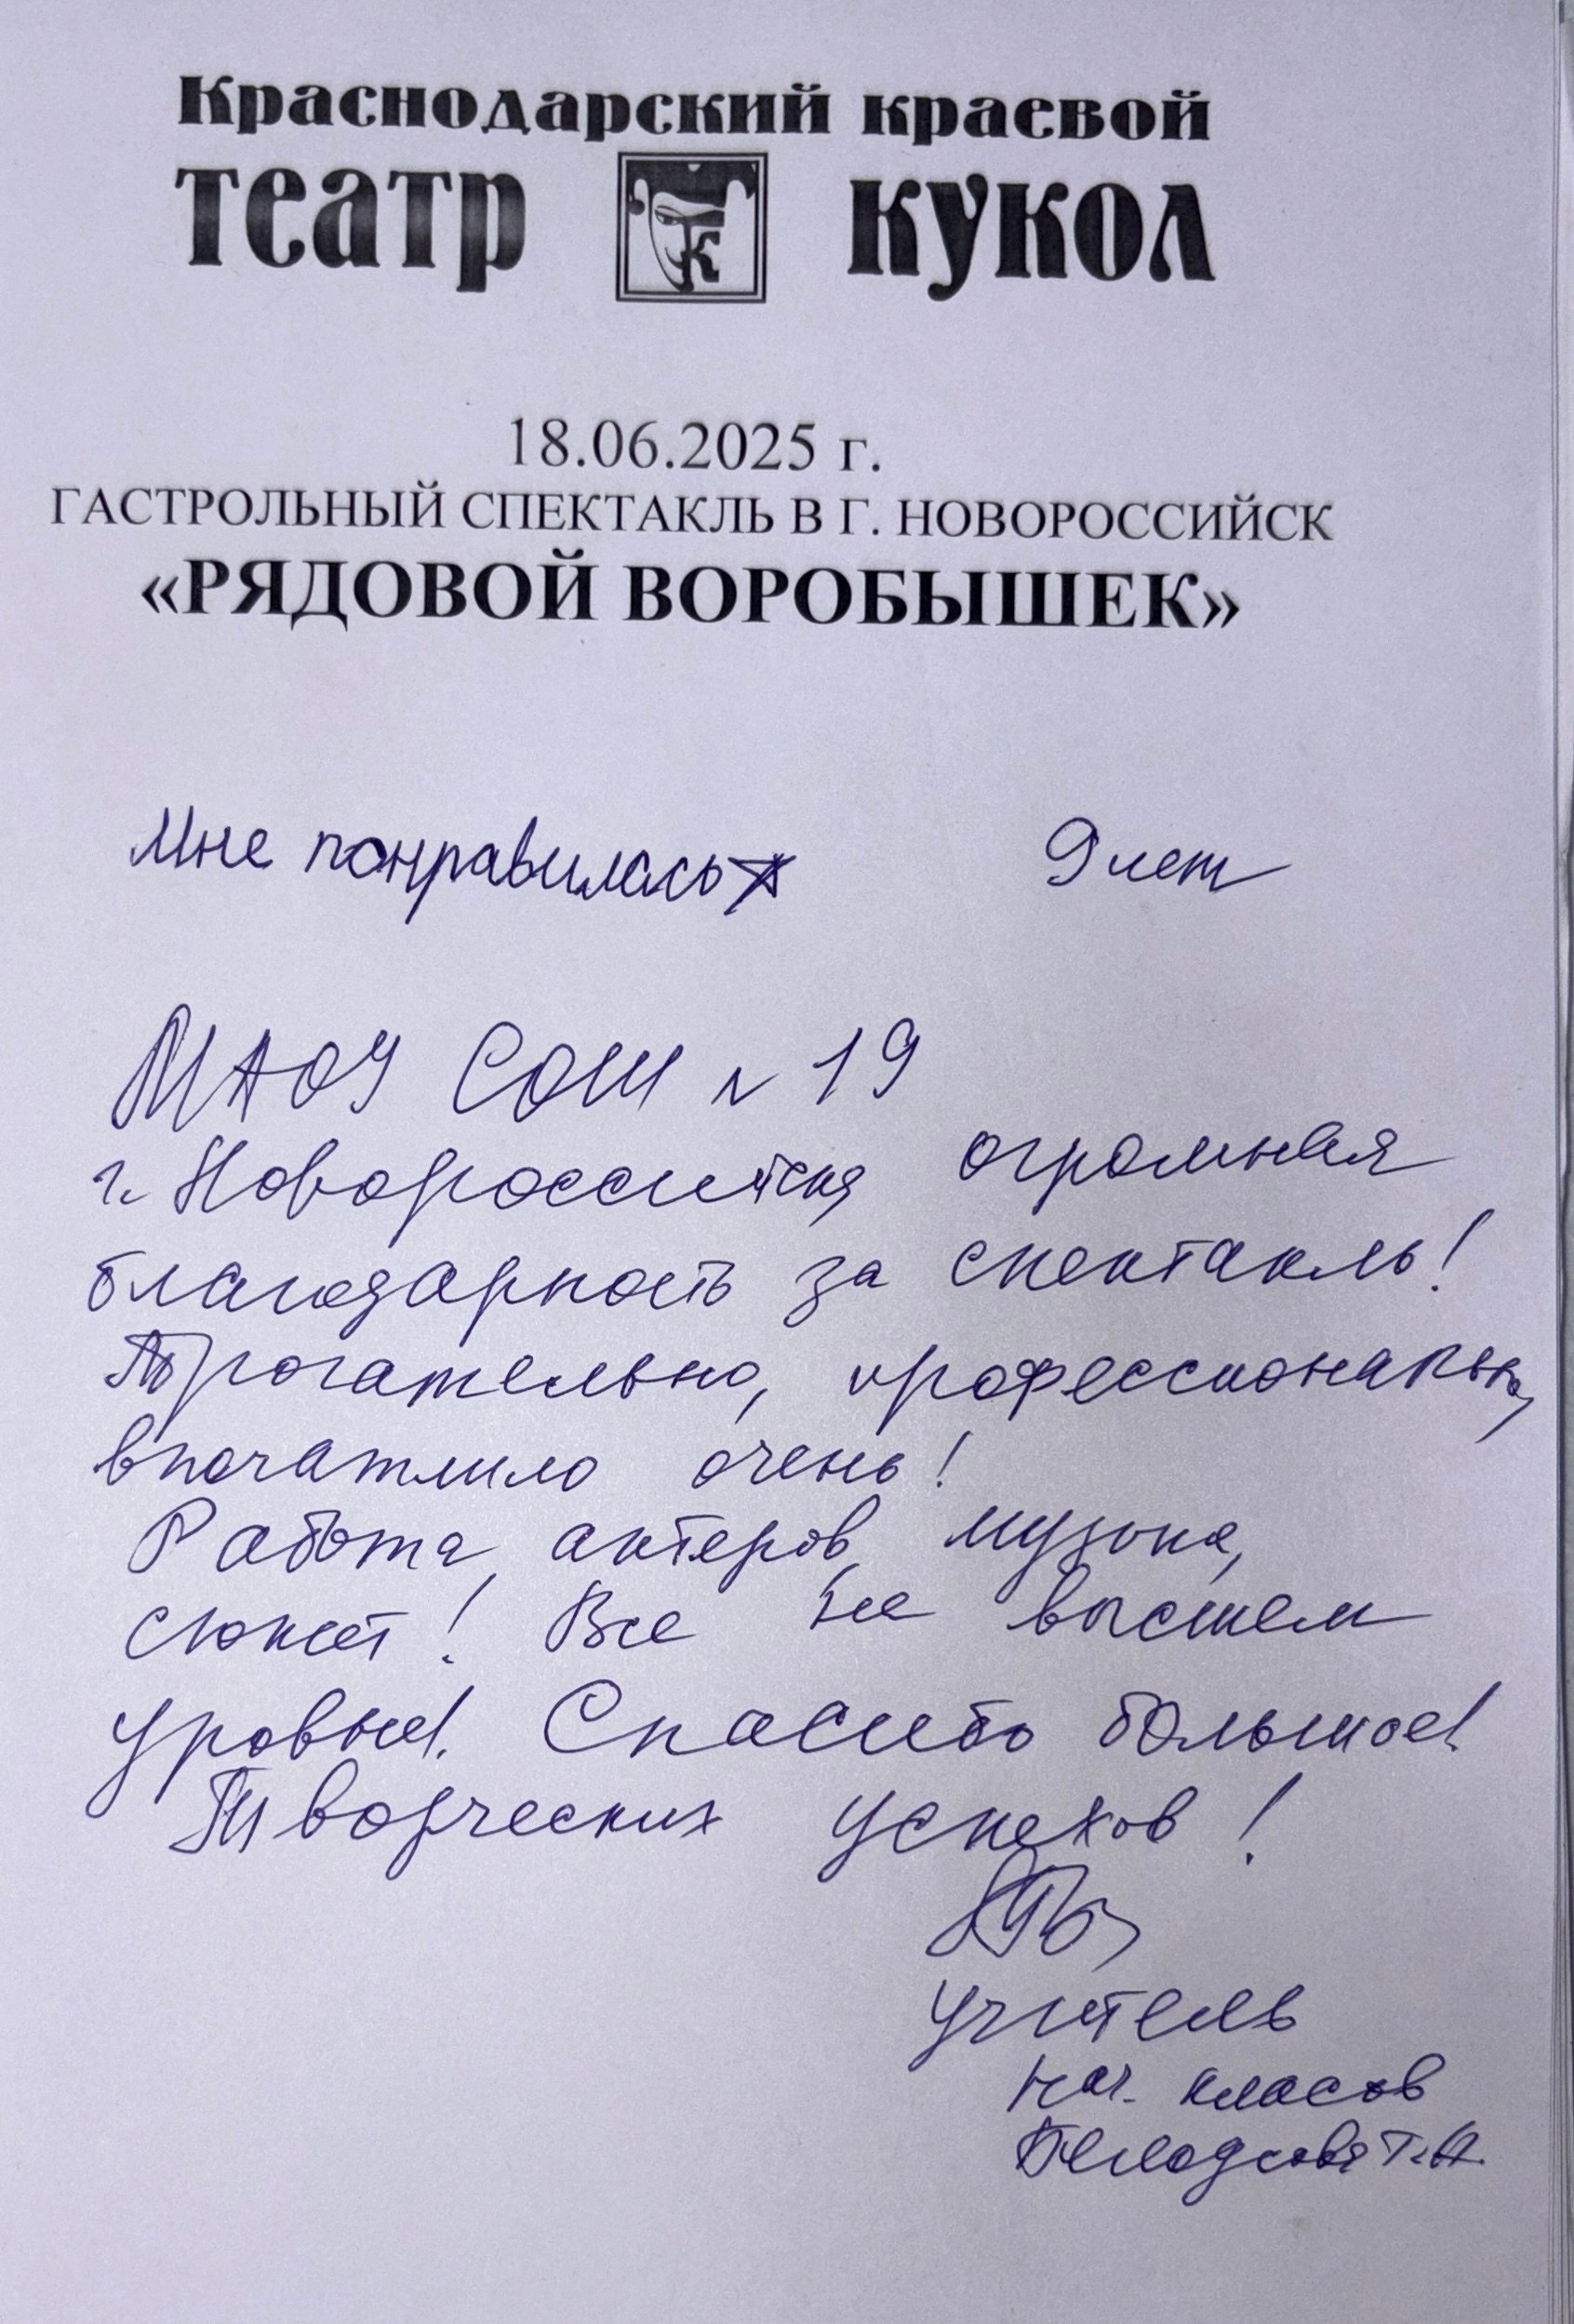 Краснодарский краевой
театр кукол
18.06.2025 г.
ГАСТРОЛЬНЫЙ СПЕКТАКЛЬ В Г. НОВОРОССИЙСК
«РЯДОВОЙ ВОРОБЫШЕК»
Мне понравилась 9 лет
МАОУ СОШ N 19
г. Новороссийска огромная
благодарность за спектакль!
Трогательно, профессионально,
впечатлило очень!
Работа актеров, музыка,
сюжет! Все на высшем
уровне! Спасибо большое!
Творческих успехов!
учитель
нач. класов
Т.А.